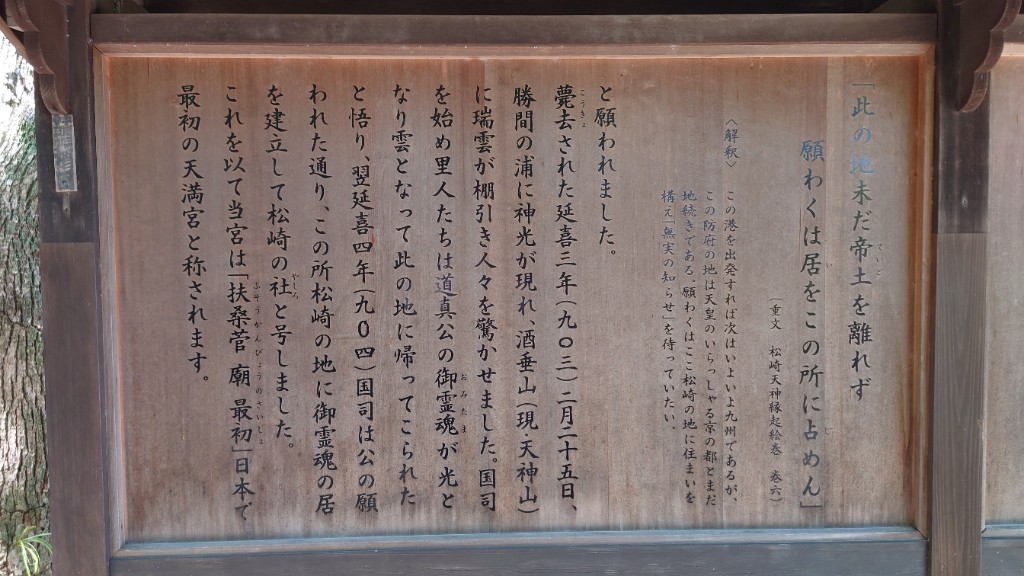 「此の地未だ帝土を離れず
願わくは居をこの所に占めん」
（重文　松崎天神縁起絵巻　巻六）
〈解釈〉この港を出発すれば次はいよいよ九州であるが、
この防府の地は天皇のいらっしゃる京の都とまだ
地続きである。願わくはここ松崎の地に住まいを
構え「無実の知らせ」を待っていたい。
と願われました。
薨去された延喜三年（九〇三）二月二十五日、
勝間の浦に神光が現れ、酒垂山（現・天神山）
に瑞雲が棚引き人々を驚かせました。国司
を始め里人たちは道真公の御霊魂が光と
なり雲となって此の地に帰ってこられた
と悟り、翌延喜四年（九〇四）国司は公の願
われた通り、この所松崎の地に御霊魂の居
を建立して松崎の社と号しました。
これを以て当宮は「扶桑菅廟最初」日本で
最初の天満宮と称されます。